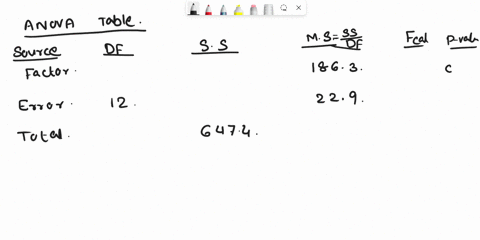 ANOVA Table.
Source DF S.S M.S=SS/DF Fcal P-valu
Factor. 186.3. C
Error. 12. 22.9.
Total. 647.4.